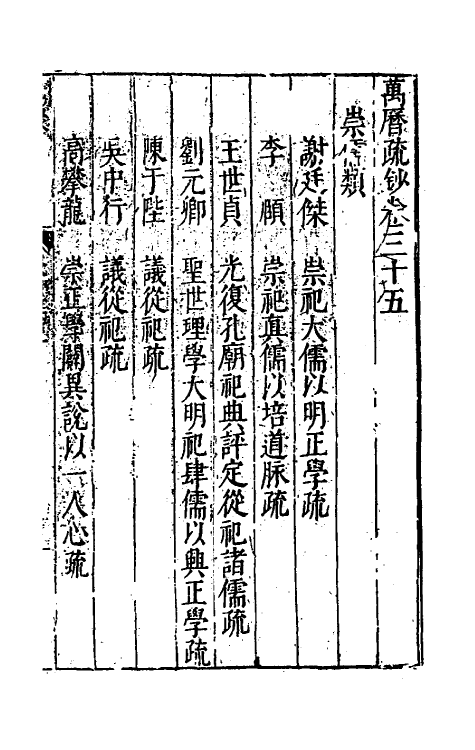 萬曆疏鈔卷三十五
崇儒類
謝廷傑　崇祀大儒以明正學疏
李頤　崇祀真儒以培道脉疏
王世貞　光復孔廟祀典評定從祀諸儒疏
劉元卿　聖世理學大明祀肆儒以興正學疏
陳于陛　議從祀疏
吳中行　議從祀疏
高攀龍　崇正學闢異說以一人心疏